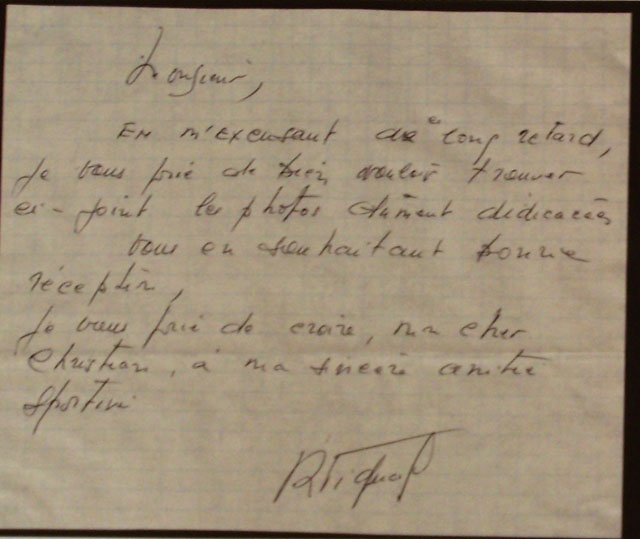 Monsieur,
En m'excusant de ce long retard,
Je vous prie de bien vouloir trouver
ci-joint les photos dûment dédicacées
Vous en souhaitant bonne
réception,
Je vous prie de croire, mon cher
Christian, à ma sincère amitié
Sportive